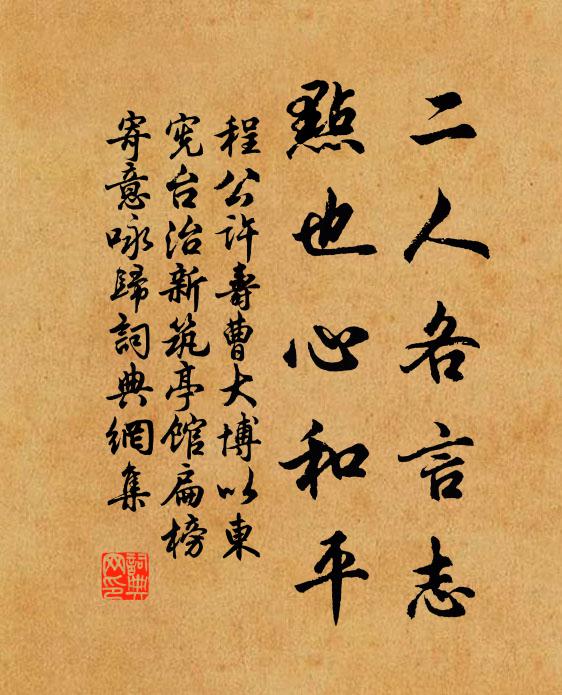 二人各言志
點也心和平
程公许壽曹大博以東
宪台治新筑亭馆扁榜
寄意咏歸詞典網集
詞典网印